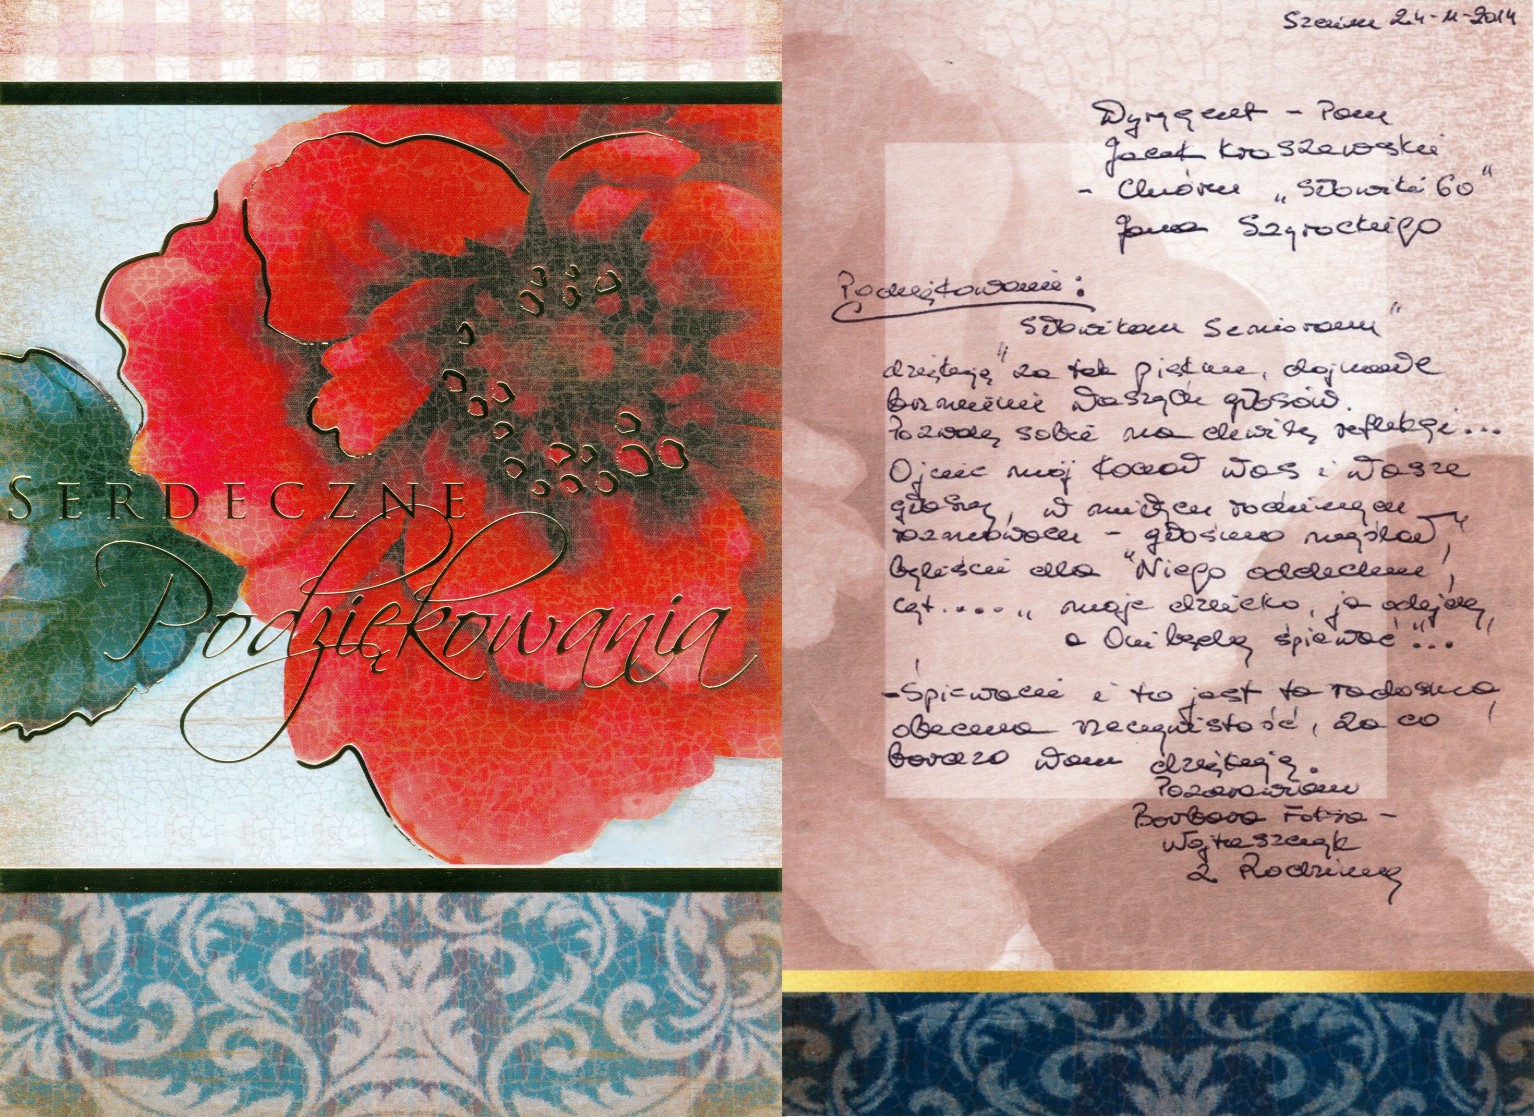 SERDECZNE
Podziękowania
24-11-2014
Dyrygent - Pan
Jacek Kraszewski
- Chóru „Słowiki 60"
Jana Szyrockiego
Podziękowanie:
Słowikom Seniorom"
dziękuję" za tak piękne, dojrzałe
brzmienie Waszych głosów.
Pozwolę sobie na chwilę refleksji...
Ojciec mój kochał Was i Wasze
głosy, w miłych rodzinnych
rozmowach - głośno myślał,"
byliście dla "Niego oddechem,
cyt.... „ moje dziecko, ja odejdę,
a Oni będą śpiewać"...
- Śpiewacie i to jest ta radosna,
obecna rzeczywistość, za co
bardzo Wam dziękuję.
Pozdrawiam
Barbara -
Wojtaszczyk
z Rodziną